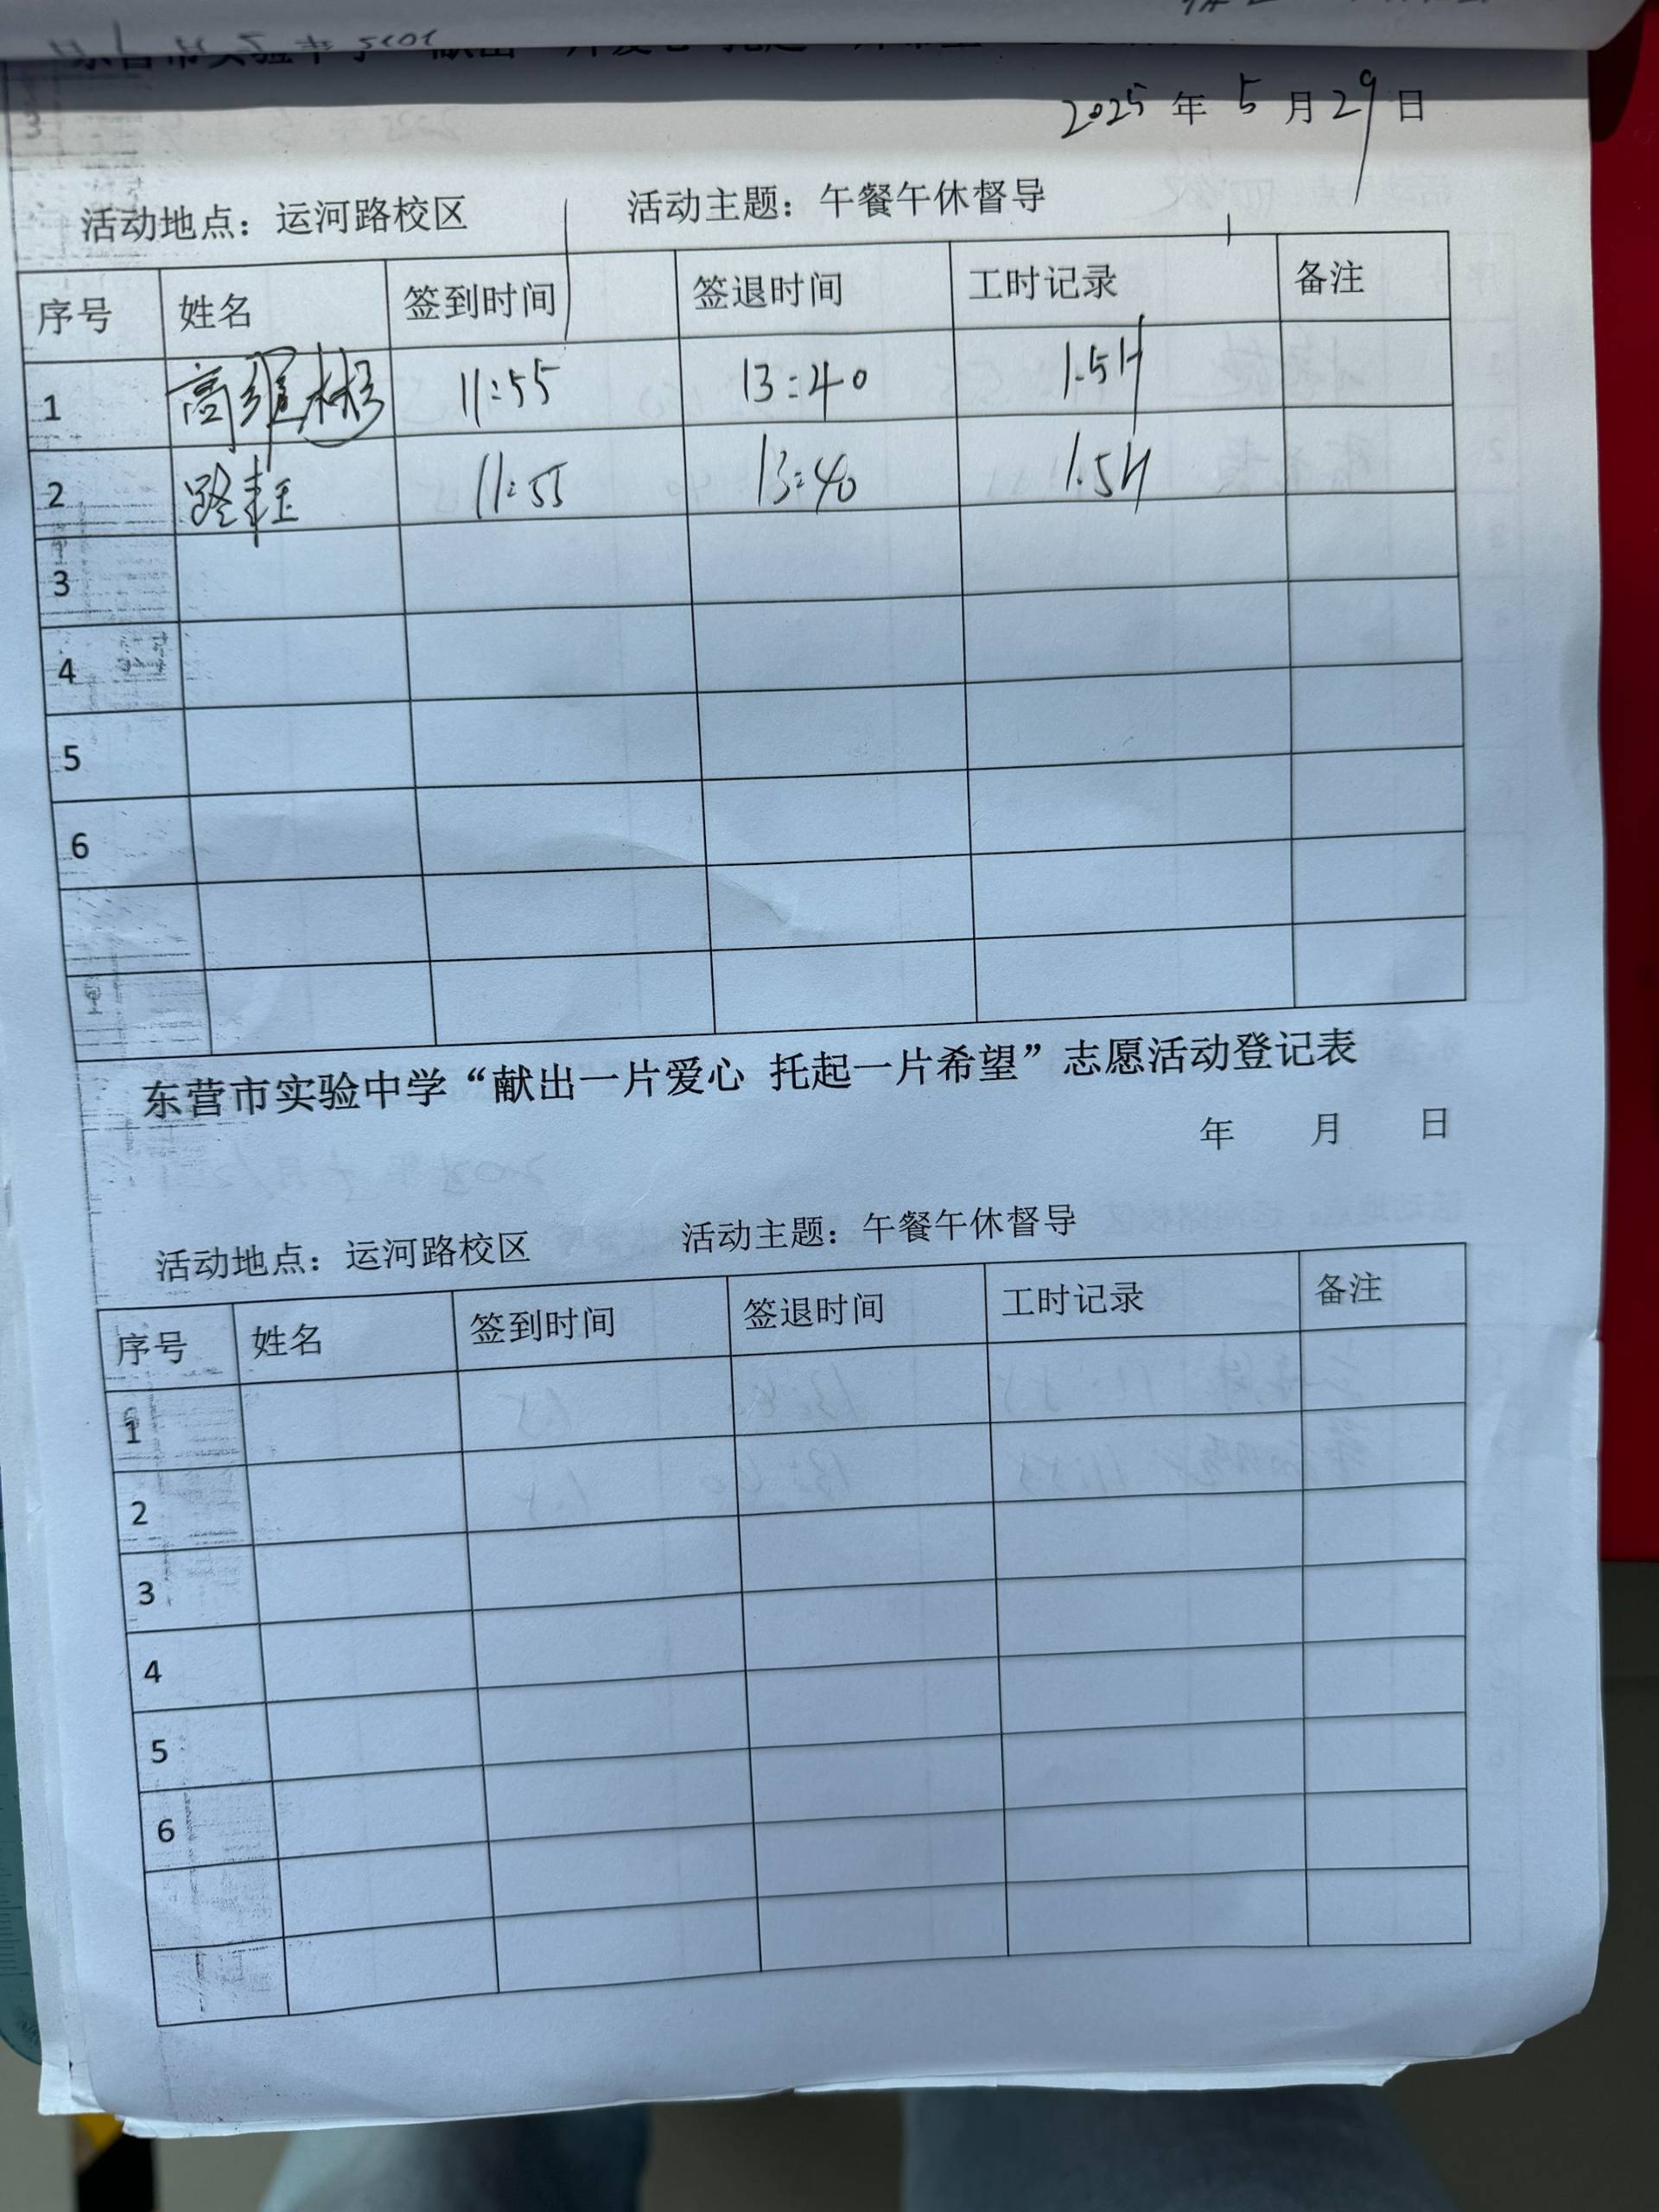 2025年5月29日
活动地点：运河路校区 活动主题：午餐午休督导
序号 姓名 签到时间 签退时间 工时记录 备注
1 高 彬 11:55 13:40 1.5H
2 路 11:55 13:40 1.5H
3
4
5
6
东营市实验中学“献出一片爱心 托起一片希望”志愿活动登记表
年 月 日
活动地点：运河路校区 活动主题：午餐午休督导
序号 姓名 签到时间 签退时间 工时记录 备注
1
2
3
4
5
6